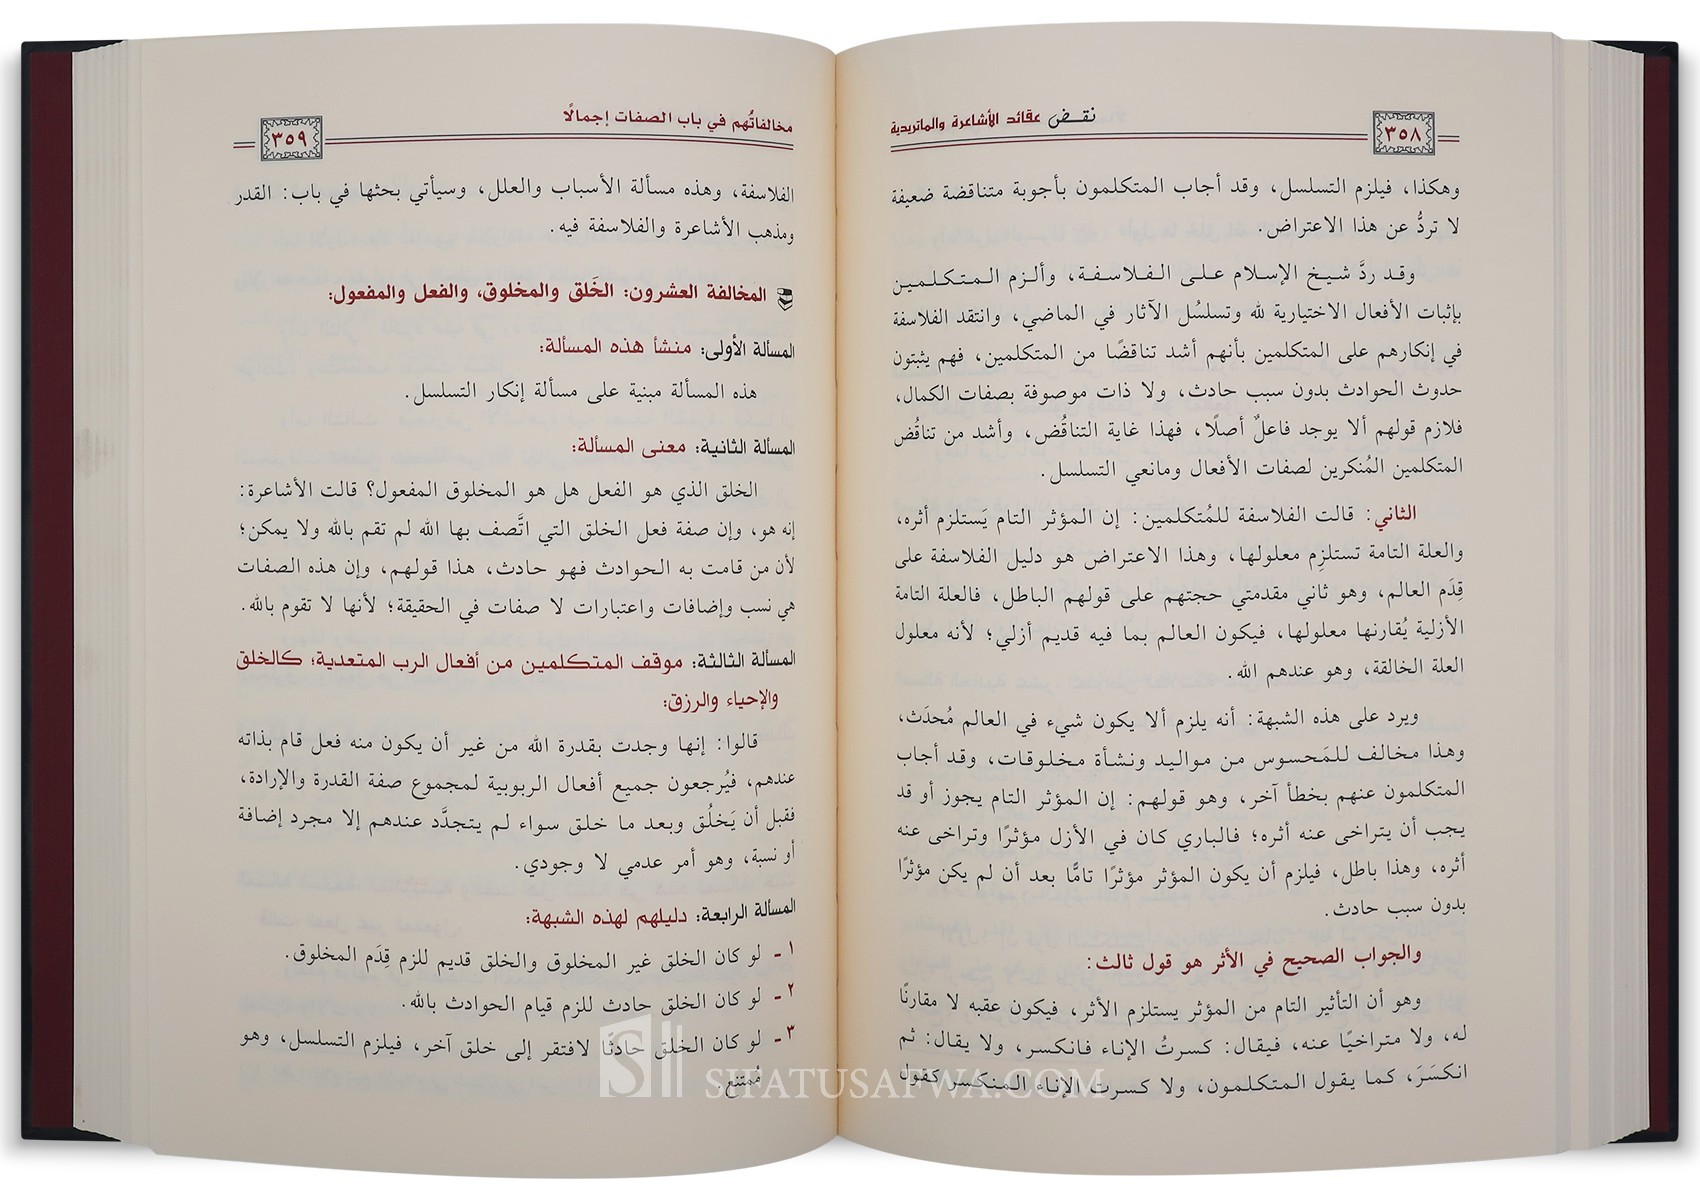 نقض عقائد الأشاعرة والماتريدية
٣٥٨
وهكذا، فيلزم التسلسل، وقد أجاب المتكلمون بأجوبة متناقضة ضعيفة
لا تردُّ عن هذا الاعتراض.
وقد ردَّ شيخ الإسلام على الفلاسفة، وألزم المتكلمين
بإثبات الأفعال الاختيارية لله وتسلسُل الآثار في الماضي، وانتقد الفلاسفة
في إنكارهم على المتكلمين بأنهم أشد تناقضًا من المتكلمين، فهم يثبتون
حدوث الحوادث بدون سبب حادث، ولا ذات موصوفة بصفات الكمال،
فلازم قولهم ألا يوجد فاعلٌ أصلًا، فهذا غاية التناقُض، وأشد من تناقُض
المتكلمين المُنكرين لصفات الأفعال ومانعي التسلسل.
الثاني: قالت الفلاسفة للمُتكلمين: إن المؤثر التام يَستلزم أثره،
والعلة التامة تستلزِم معلولها، وهذا الاعتراض هو دليل الفلاسفة على
قِدَم العالم، وهو ثاني مقدمتي حجتهم على قولهم الباطل، فالعلة التامة
الأزلية يُقارنها معلولها، فيكون العالم بما فيه قديم أزلي؛ لأنه معلول
العلة الخالقة، وهو عندهم الله.
ويرد على هذه الشبهة: أنه يلزم ألا يكون شيء في العالم مُحدَث،
وهذا مخالف للمَحسوس من مواليد ونشأة مخلوقات، وقد أجاب
المتكلمون عنهم بخطأ آخر، وهو قولهم: إن المؤثر التام يجوز أو قد
يجب أن يتراخى عنه أثره؛ فالباري كان في الأزل مؤثرًا وتراخى عنه
أثره، وهذا باطل، فيلزم أن يكون المؤثر مؤثرًا تامًّا بعد أن لم يكن مؤثرًا
بدون سبب حادث.
والجواب الصحيح في الأثر هو قول ثالث:
وهو أن التأثير التام من المؤثر يستلزم الأثر، فيكون عقبه لا مقارنًا
له، ولا متراخيًا عنه، فيقال: كسرتُ الإناء فانكسر، ولا يقال: ثم
انكسَرَ، كما يقول المتكلمون، ولا كسرت الإناء المنكسر كقول
مخالفاتُهم في باب الصفات إجمالًا
٣٥٩
الفلاسفة، وهذه مسألة الأسباب والعلل، وسيأتي بحثها في باب: القدر
ومذهب الأشاعرة والفلاسفة فيه.
المخالفة العشرون: الخَلق والمخلوق، والفعل والمفعول:
المسألة الأولى: منشأ هذه المسألة:
هذه المسألة مبنية على مسألة إنكار التسلسل.
المسألة الثانية: معنى المسألة:
الخلق الذي هو الفعل هل هو المخلوق المفعول؟ قالت الأشاعرة:
إنه هو، وإن صفة فعل الخلق التي اتَّصف بها الله لم تقم بالله ولا يمكن؛
لأن من قامت به الحوادث فهو حادث، هذا قولهم، وإن هذه الصفات
هي نسب وإضافات واعتبارات لا صفات في الحقيقة؛ لأنها لا تقوم بالله.
المسألة الثالثة: موقف المتكلمين من أفعال الرب المتعدية؛ كالخلق
والإحياء والرزق:
قالوا: إنها وجدت بقدرة الله من غير أن يكون منه فعل قام بذاته
عندهم، فيُرجعون جميع أفعال الربوبية لمجموع صفة القدرة والإرادة،
فقبل أن يَخلُق وبعد ما خلق سواء لم يتجدَّد عندهم إلا مجرد إضافة
أو نسبة، وهو أمر عدمي لا وجودي.
المسألة الرابعة: دليلهم لهذه الشبهة:
١ - لو كان الخلق غير المخلوق والخلق قديم للزم قِدَم المخلوق.
٢ - لو كان الخلق حادث للزم قيام الحوادث بالله.
٣ - لو كان الخلق حادثًا لافتقر إلى خلق آخر، فيلزم التسلسل، وهو
مُمتنع.
SIFATUSAFWA.COM